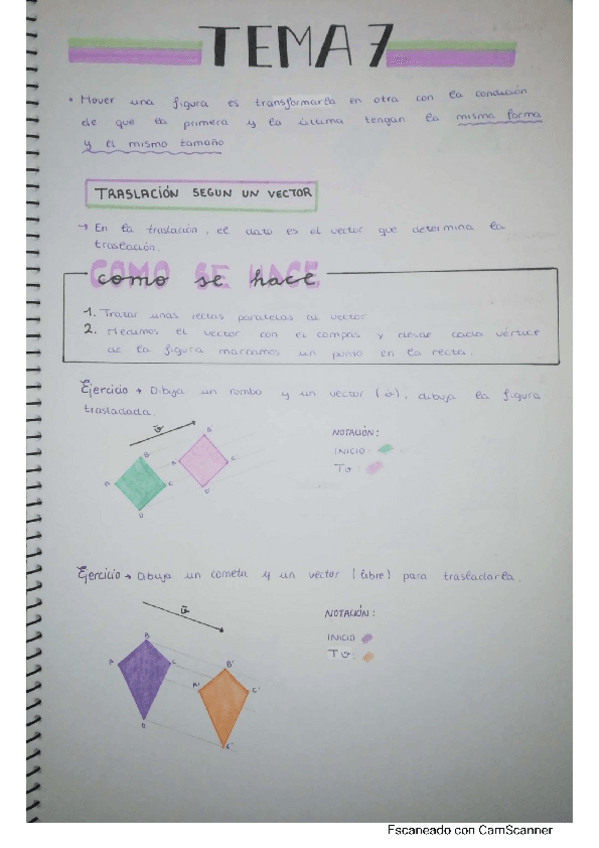 TEMA 7
• Mover una figura es transformarla en otra con la condición
de que la primera y la última tengan la misma forma
y el mismo tamaño
TRASLACIÓN SEGUN UN VECTOR
→ En la traslación, el dato es el vector que determina la
traslación.
COMO SE HACE
como se hace
1. Trazar unas rectas paralelas al vector
2. Medimos el vector con el compás y desde cada vértice
de la figura marcamos un punto en la recta.
Ejercicio → Dibuja un rombo y un vector (v⃗), dibuja la figura
trasladada.
v⃗
NOTACIÓN:
INICIO:
Tv⃗:
A B C D
A B' C' D'
Ejercicio → Dibuja un cometa y un vector (libre) para trasladarla.
v⃗
NOTACIÓN:
INICIO
Tv⃗:
A B C
A' B' C'
Escaneado con CamScanner